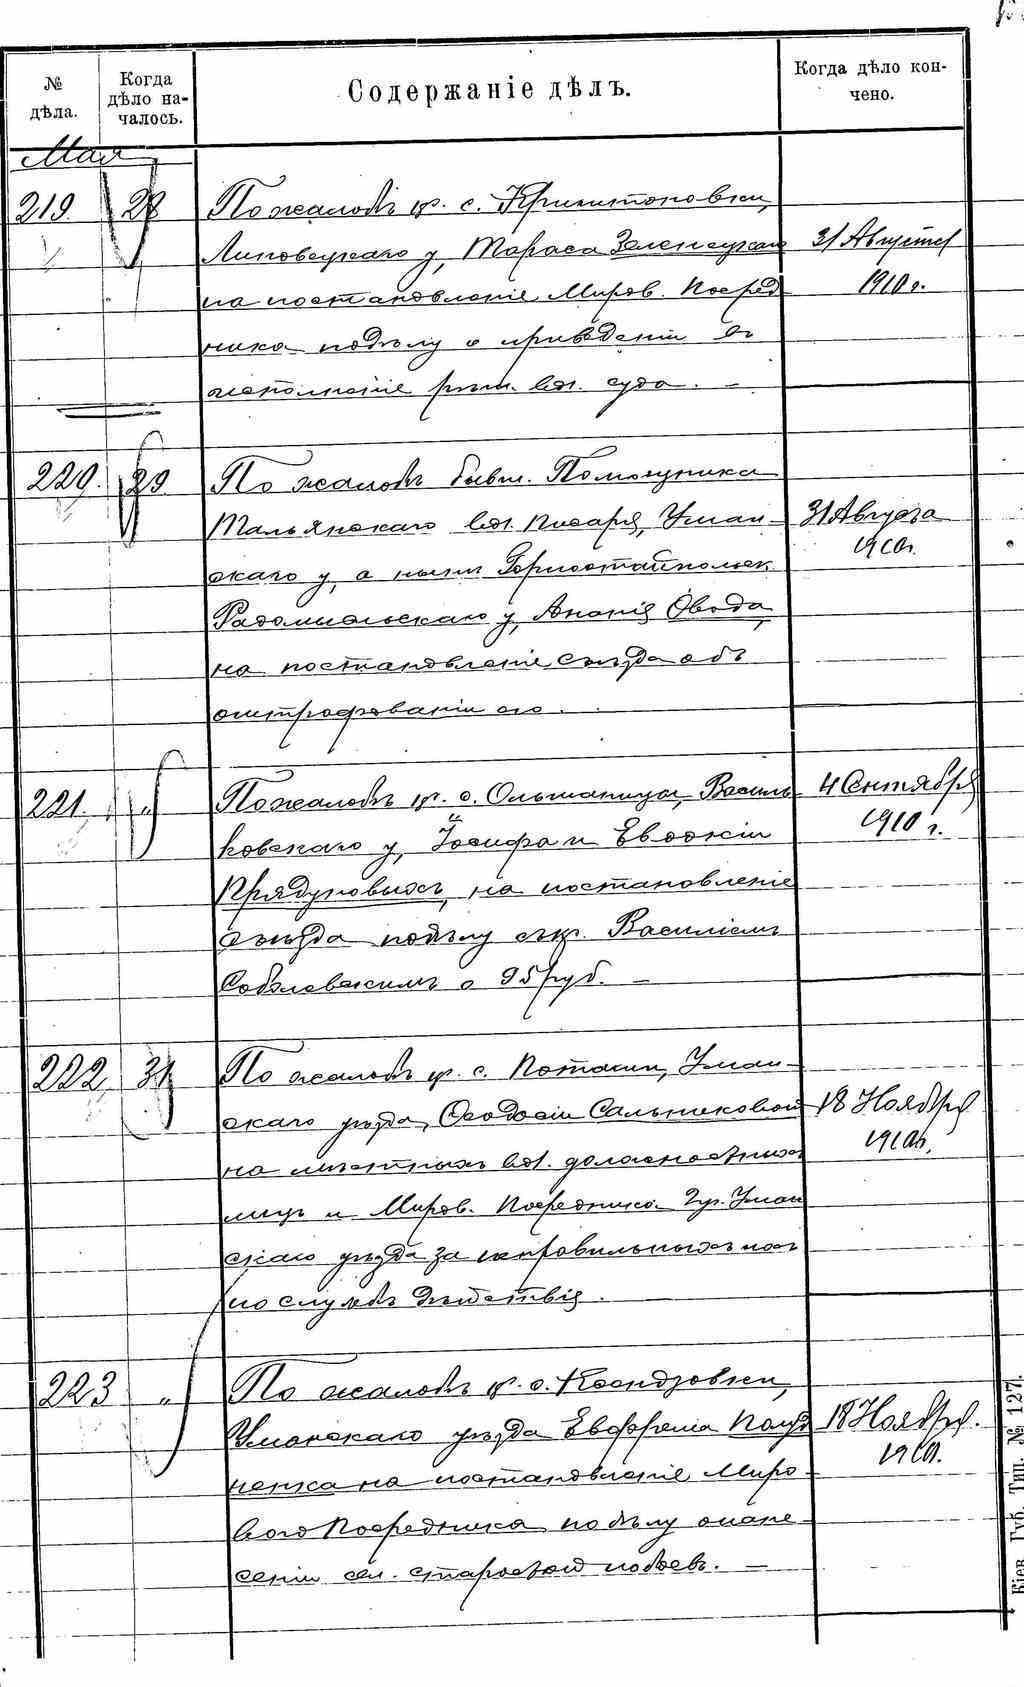 № дѣла.
Когда дѣло на-
чалось.
Содержаніе дѣлъ.
Когда дѣло кон-
чено.
Мая
219. 28 По жалобѣ кр. с.
Липовецкаго у, Тараса Зеленецкаго 31 Августа
на постановленіе Миров. Посред 1910 г.
ника по дѣлу о приведеніи въ
исполненіе рѣш. вол. суда. –
220. 29 По жалобѣ бывш. Помощника
Тальянскаго вол. писаря, Уман- 31 Августа
скаго у, а нынѣ Горностайпольск. 1910 г.
Радомысльскаго у, Ананія Овода,
на постановленіе съѣзда объ
оштрафованіи его.
221. " По жалобѣ кр. с. Ольшаницы, Василь 4 Сентября
ковскаго у, Іосифа и Евдокіи 1910 г.
на постановленіе
съѣзда по дѣлу съ кр. Василіемъ
Соболевскимъ о 95 руб. –
222. 31 По жалобѣ кр. с. Поташни, Уман-
скаго уѣзда, Ѳеодосіи Сальниковой 18 Ноября
на мѣстныхъ вол. должностныхъ 1910 г.
лицъ и Миров. Посредника 2 уч. Уман
скаго уѣзда за неправильныя ихъ
по службѣ дѣйствія.
223 " По жалобѣ кр. с. Ксендзовки,
Уманскаго уѣзда Евфрема 18 Ноября.
на постановленіе Миро- 1910 г.
вого Посредника по дѣлу о нане-
сеніи сел. старостой побоевъ. –
Кіев. Губ. Тип. № 127.